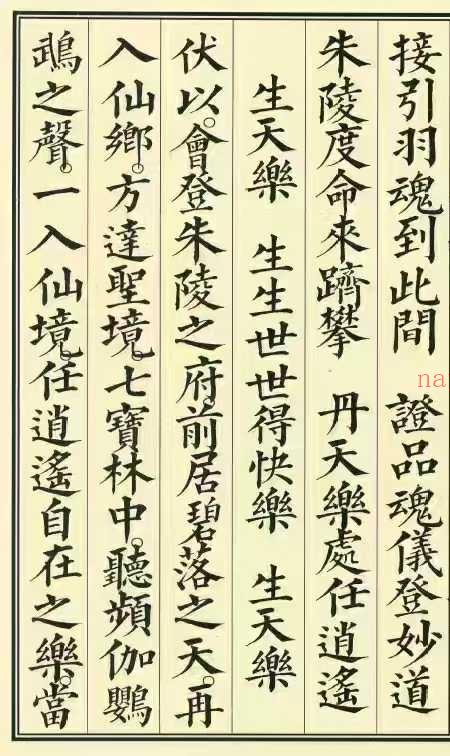 接引羽魂到此間　證品魂儀登妙道
朱陵度命來躋攀　丹天樂處任逍遙
生天樂　生生世世得快樂　生天樂
伏以。會登朱陵之府。前居碧落之天。再
入仙鄉。方達聖境。七寶林中。聽頻伽鸚
鵡之聲。一入仙境。任逍遙自在之樂。當
na